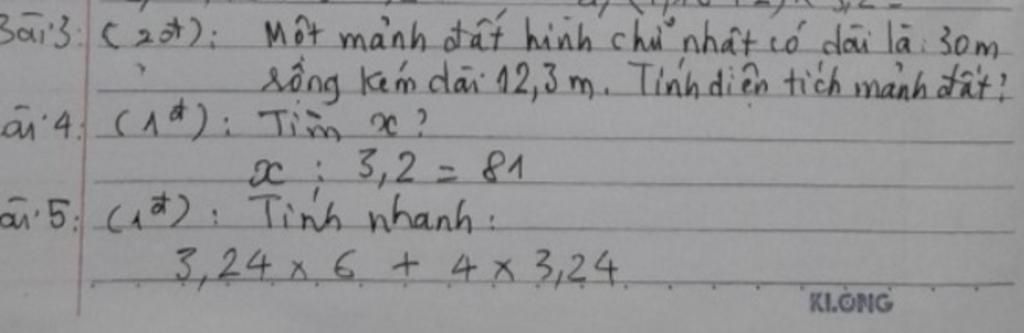 Bài 3: (2đ): Một mảnh đất hình chữ nhật có dài là: 30m
rộng kém dài 12,3 m. Tính diện tích mảnh đất?
ài 4: (1đ): Tìm x?
x : 3,2 = 81
ài 5: (1đ): Tính nhanh:
3,24 x 6 + 4 x 3,24
KLONG